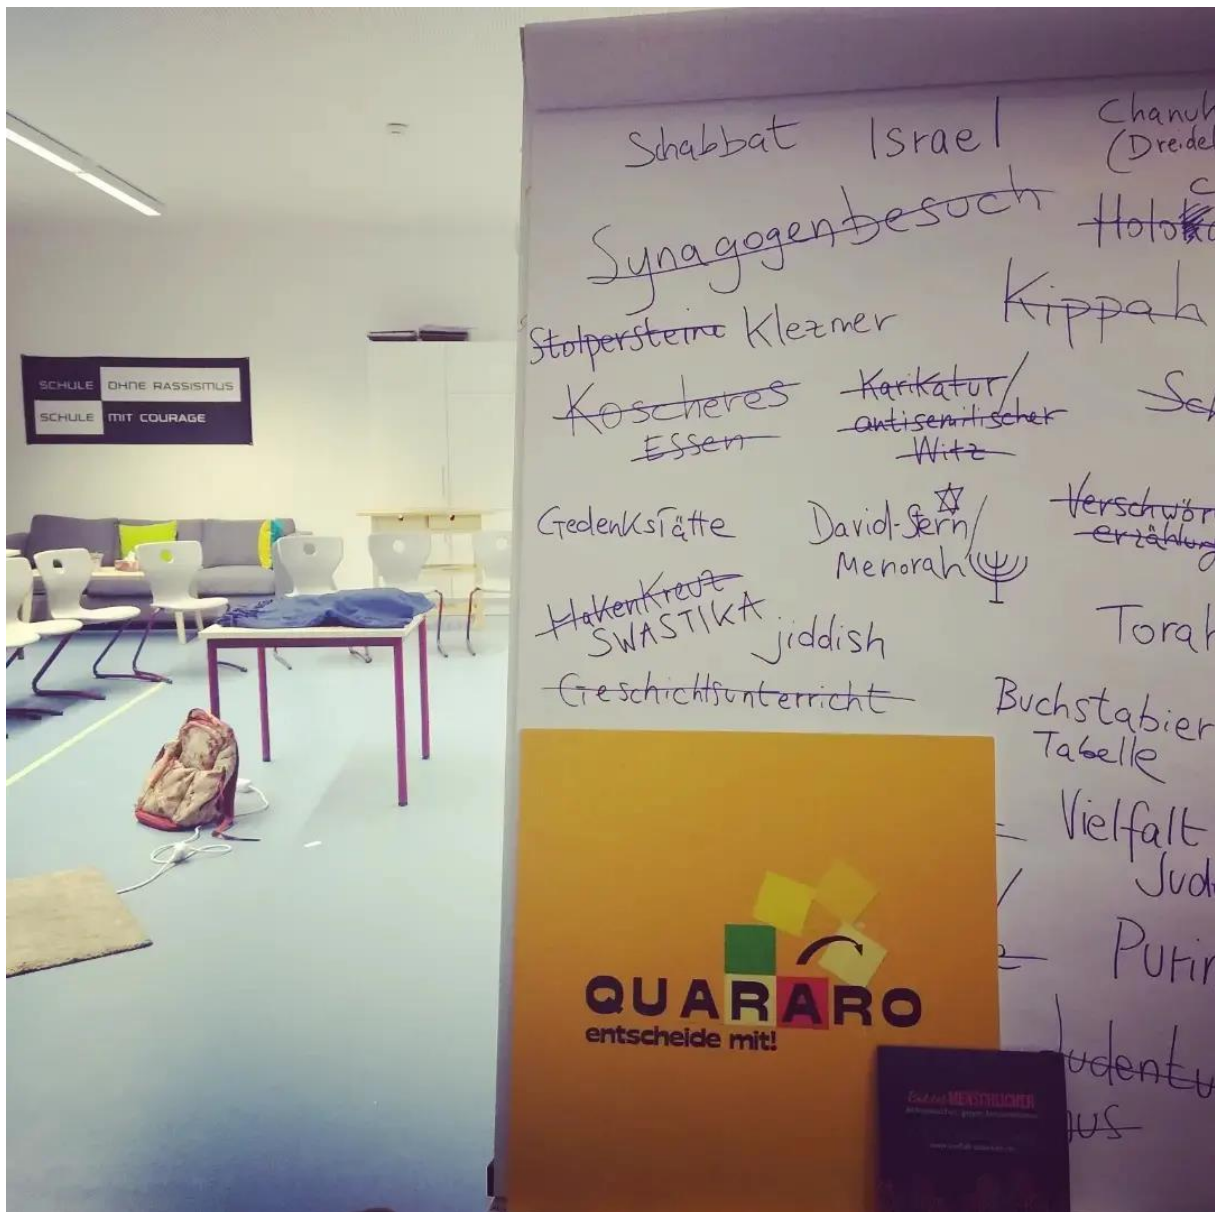 SCHULE OHNE RASSISMUS
SCHULE MIT COURAGE
Schabbat Israel Chanuk
(Dreidel
Synagogenbesuch
Kippah
Stolpersteine Klezmer
Koscheres
Essen
Karikatur/
antisemitischer
Witz
Sch
Gedenkstätte
David-Stern/
Menorah
Verschwör
erzählung
Hakenkreuz
SWASTIKA
jiddish
Torah
Geschichtsunterricht
Buchstabier
Tabelle
Vielfalt
Jud
Purim
Judentu
mus
QUARARO
entscheide mit!
MENSCHLICHER